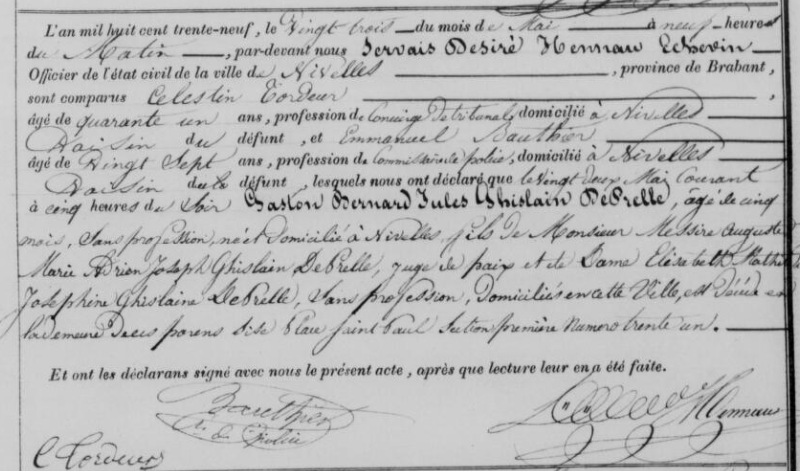 L'an mil huit cent trente-neuf, le Vingt trois du mois de Mai à neuf heures
du Matin, par-devant nous Servais Desiré Hennau Echevin
Officier de l'état civil de la ville de Nivelles, province de Brabant,
sont comparus Celestin Tordeur
âgé de quarante un ans, profession de Concierge De tribunal, domicilié à Nivelles
Voisin du défunt, et Emmanuel Bauthier
âgé de Vingt Sept ans, profession de Commissaire de police, domicilié à Nivelles
Voisin du défunt, lesquels nous ont déclaré que le Vingt deux Mai Courant
à cinq heures du Soir Gaston Bernard Jules Ghislain DePrelle, âgé de cinq
mois, Sans profession, né et Domicilié à Nivelles, fils de Monsieur Messire Auguste
Marie Adrien Joseph Ghislain DePrelle, juge de paix et de Dame Elisabeth
Josephine Ghislaine DePrelle, Sans profession, Domiciliés en cette Ville, est Décédé en
la demeure De ses parens Sise Place Saint Paul Section première Numero trente un.
Et ont les déclarans signé avec nous le présent acte, après que lecture leur en a été faite.
Bauthier
C. de Police
Hennau
C Tordeur